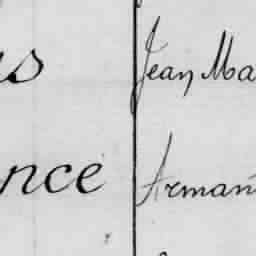 us Jean Ma
nce Arman